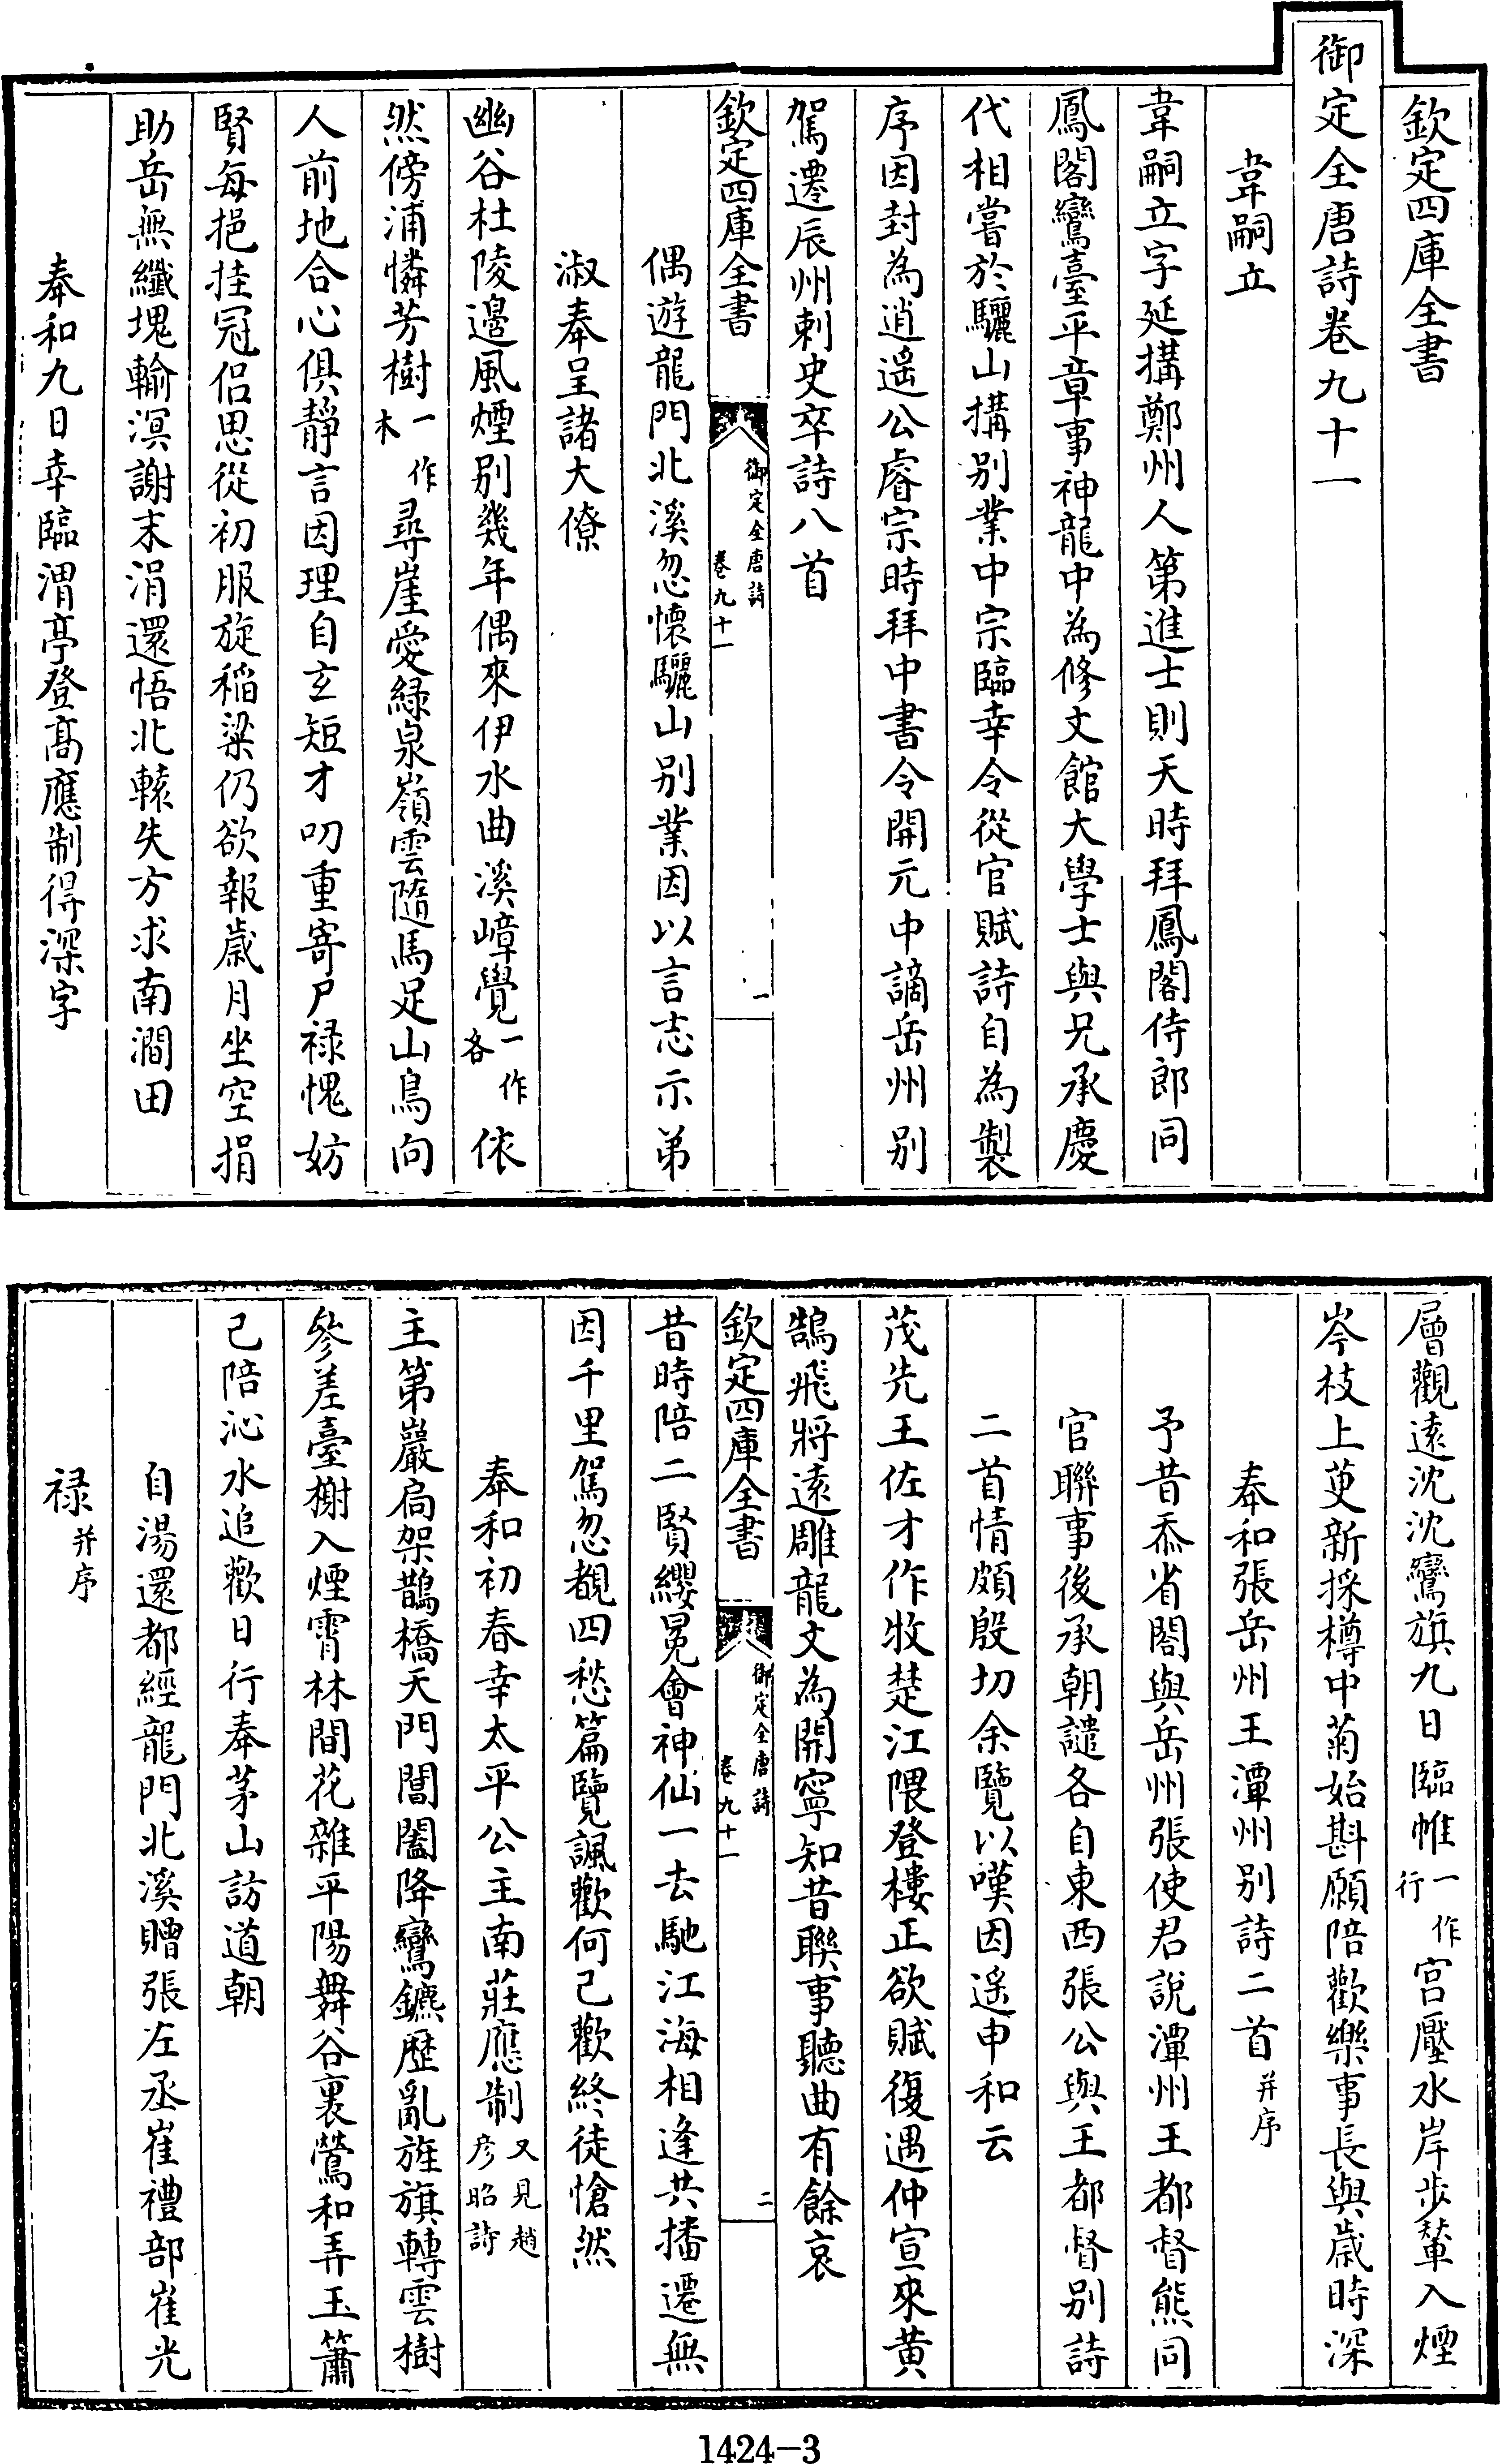 欽定四庫全書
御定全唐詩卷九十一
韋嗣立
韋嗣立字延搆鄭州人第進士則天時拜鳳閣侍郎同
鳳閣鸞臺平章事神龍中為修文館大學士與兄承慶
代相嘗於驪山搆别業中宗臨幸令從官賦詩自為製
序因封為逍遥公睿宗時拜中書令開元中謫岳州别
駕遷辰州刺史卒詩八首
欽定四庫全書
御定全唐詩
卷九十一
一
偶遊龍門北溪忽懷驪山别業因以言志示弟
淑奉呈諸大僚
幽谷杜陵邊風煙别幾年偶來伊水曲溪嶂覺一作各依
然傍浦憐芳樹一作木尋崖愛緑泉嶺雲隨馬足山鳥向
人前地合心俱靜言因理自玄短才叨重寄尸禄愧妨
賢每挹挂冠侣思從初服旋稲粱仍欲報歲月坐空捐
助岳無纖塊輸溟謝末涓還悟北轅失方求南澗田
奉和九日幸臨渭亭登髙應制得深字
層觀逺沈沈鸞旗九日臨帷一作行宫壓水岸步輦入煙
岑枝上萸新採樽中菊始斟願陪歡樂事長與歲時深
奉和張岳州王潭州别詩二首并序
予昔忝省閣與岳州張使君説潭州王都督熊同
官聯事後承朝譴各自東西張公與王都督别詩
二首情頗殷切余覽以嘆因遥申和云
茂先王佐才作牧楚江隈登樓正欲賦復遇仲宣來黄
鵠飛將逺雕龍文為開寧知昔聯事聽曲有餘哀
欽定四庫全書
御定全唐詩
卷九十一
二
昔時陪二賢纓冕會神仙一去馳江海相逢共播遷無
因千里駕忽覩四愁篇覽諷歡何已歡終徒愴然
奉和初春幸太平公主南莊應制又見趙彦昭詩
主第巖扃架鵲橋天門閶闔降鸞鑣歴亂旌旗轉雲樹
參差臺榭入煙霄林間花雜平陽舞谷裏鶯和弄玉簫
已陪沁水追歡日行奉茅山訪道朝
自湯還都經龍門北溪贈張左丞崔禮部崔光
禄并序
1424-3